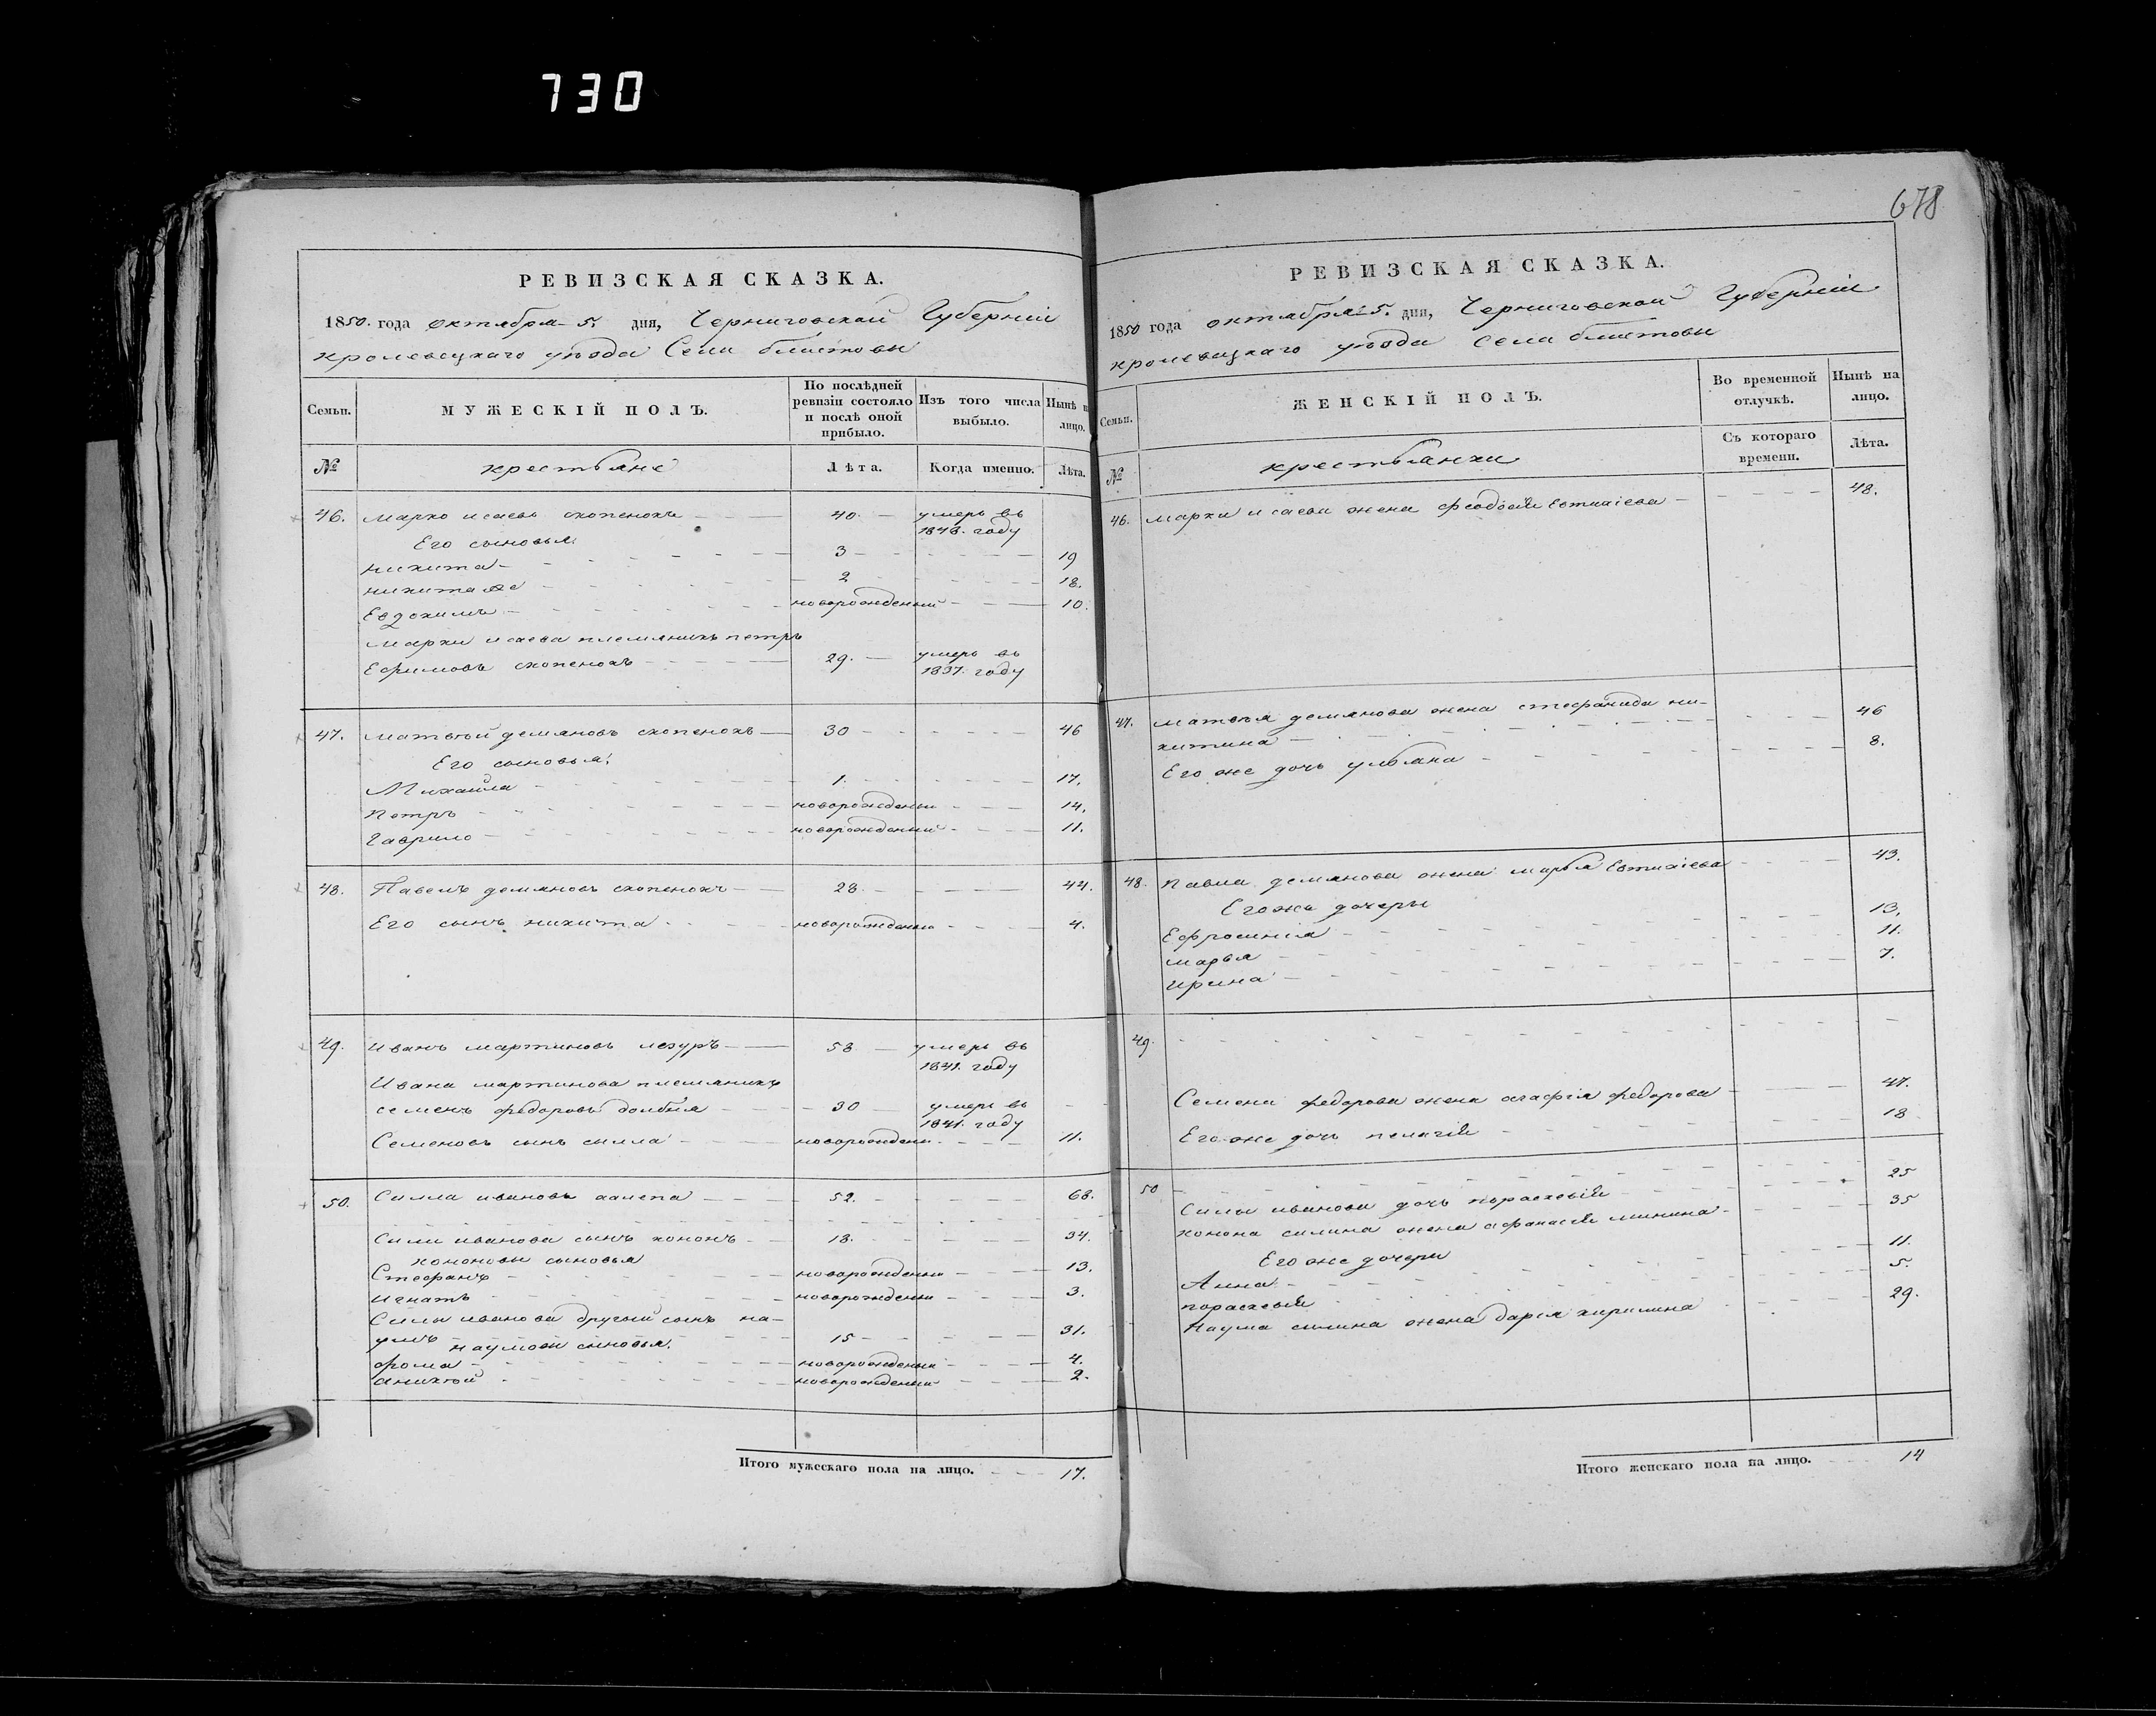 730
678
РЕВИЗСКАЯ СКАЗКА.
1850. года октября 5. дня, Черниговской Губерніи
кролевецкаго уезда Села блистовы
Семьи. МУЖЕСКІЙ ПОЛЪ. По послѣдней ревизіи состояло и послѣ оной прибыло. Изъ того числа выбыло. Нынѣ н лицо.
№ крестьяне Лѣта. Когда именно. Лѣта.
46. марко исаевъ скопенокъ 40. умеръ въ
1848. году
Его сыновья
никита 3 19
никита же 2 18.
Евдокимъ новорожденый 10.
марки исаева племяникъ петръ
Ефимовъ скопенокъ 29. умеръ въ
1837. году
47. матвѣй демяновъ скопенокъ 30 46
Его сыновья:
Михайла 1. 17.
петръ новорожденый 14.
Гаврило новорожденый 11.
48. Павелъ демяновъ скопенокъ 28. 44.
Его сынъ никита новорожденый 4.
49. иванъ мартиновъ 58 умеръ въ
1841. году
Ивана мартинова племяникъ
семенъ федоровъ долбня 30 умеръ въ
1841. году
Семеновъ сынъ силла новорожденый 11.
50. Силла ивановъ 52. 68.
Сили иванова сынъ кононъ 18. 34.
кононовы сыновья
Стефанъ новорожденый 13.
игнатъ новорожденый 3.
Силы иванова другий сынъ на-
умъ 15 31.
наумови сыновья.
фома новорожденый 4.
аникѣй новорожденый 2.
Итого мужескаго пола на лицо. 17.
РЕВИЗСКАЯ СКАЗКА.
1850 года октября 5. дня, Черниговской Губерніи
кролевецкаго уезда села блистовы
Семьи. ЖЕНСКІЙ ПОЛЪ. Во временной отлучкѣ. Нынѣ на лицо.
№ крестьянки Съ котораго времени. Лѣта.
46. марки исаева жена феодосия Евтихіева 48.
47. матвѣя демянова жена стефанида ни-
китина 46
Его же дочь ульяна 8.
48. павла демянова жена марья Евтихіева 43.
Его же дочеры
Ефросинія 13.
марья 11.
ирина 7.
49.
Семена федорова жена агафія федорова 47.
Его же дочь пелагія 18
50
Силы иванова дочь параскевія 25
конона силина жена афанасія минина 35
Его же дочери
Анна 11.
параскевія 5.
наума силина жена дарія кирилина 29.
Итого женскаго пола на лицо. 14